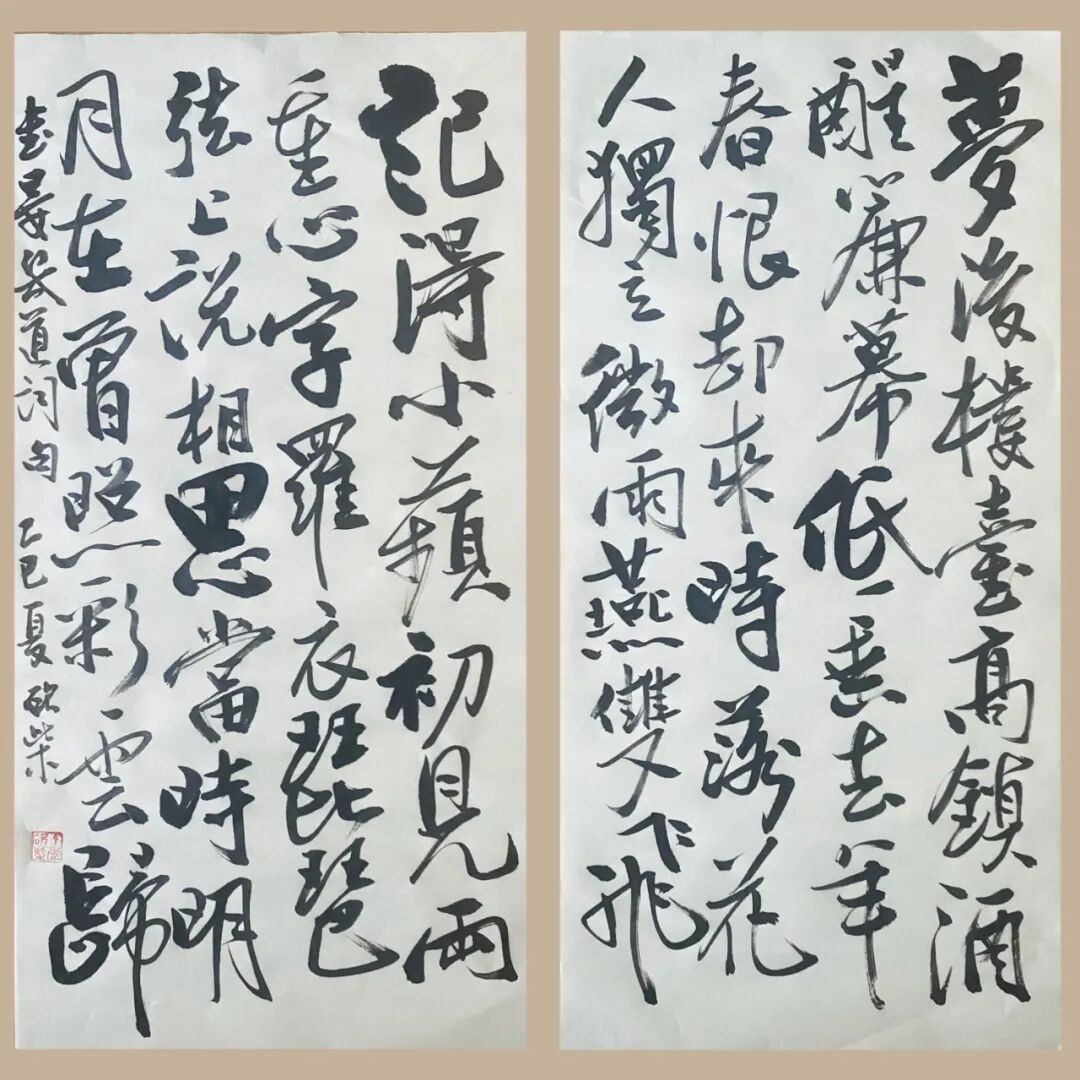 夢後樓臺高鎖酒
醒簾幕低垂去年
春恨却來時落花
人獨立微雨燕雙飛
記得小蘋初見兩
重心字羅衣琵琶
弦上說相思當時明
月在曾照彩雲歸
晏幾道詞句 乙巳夏 砍柴